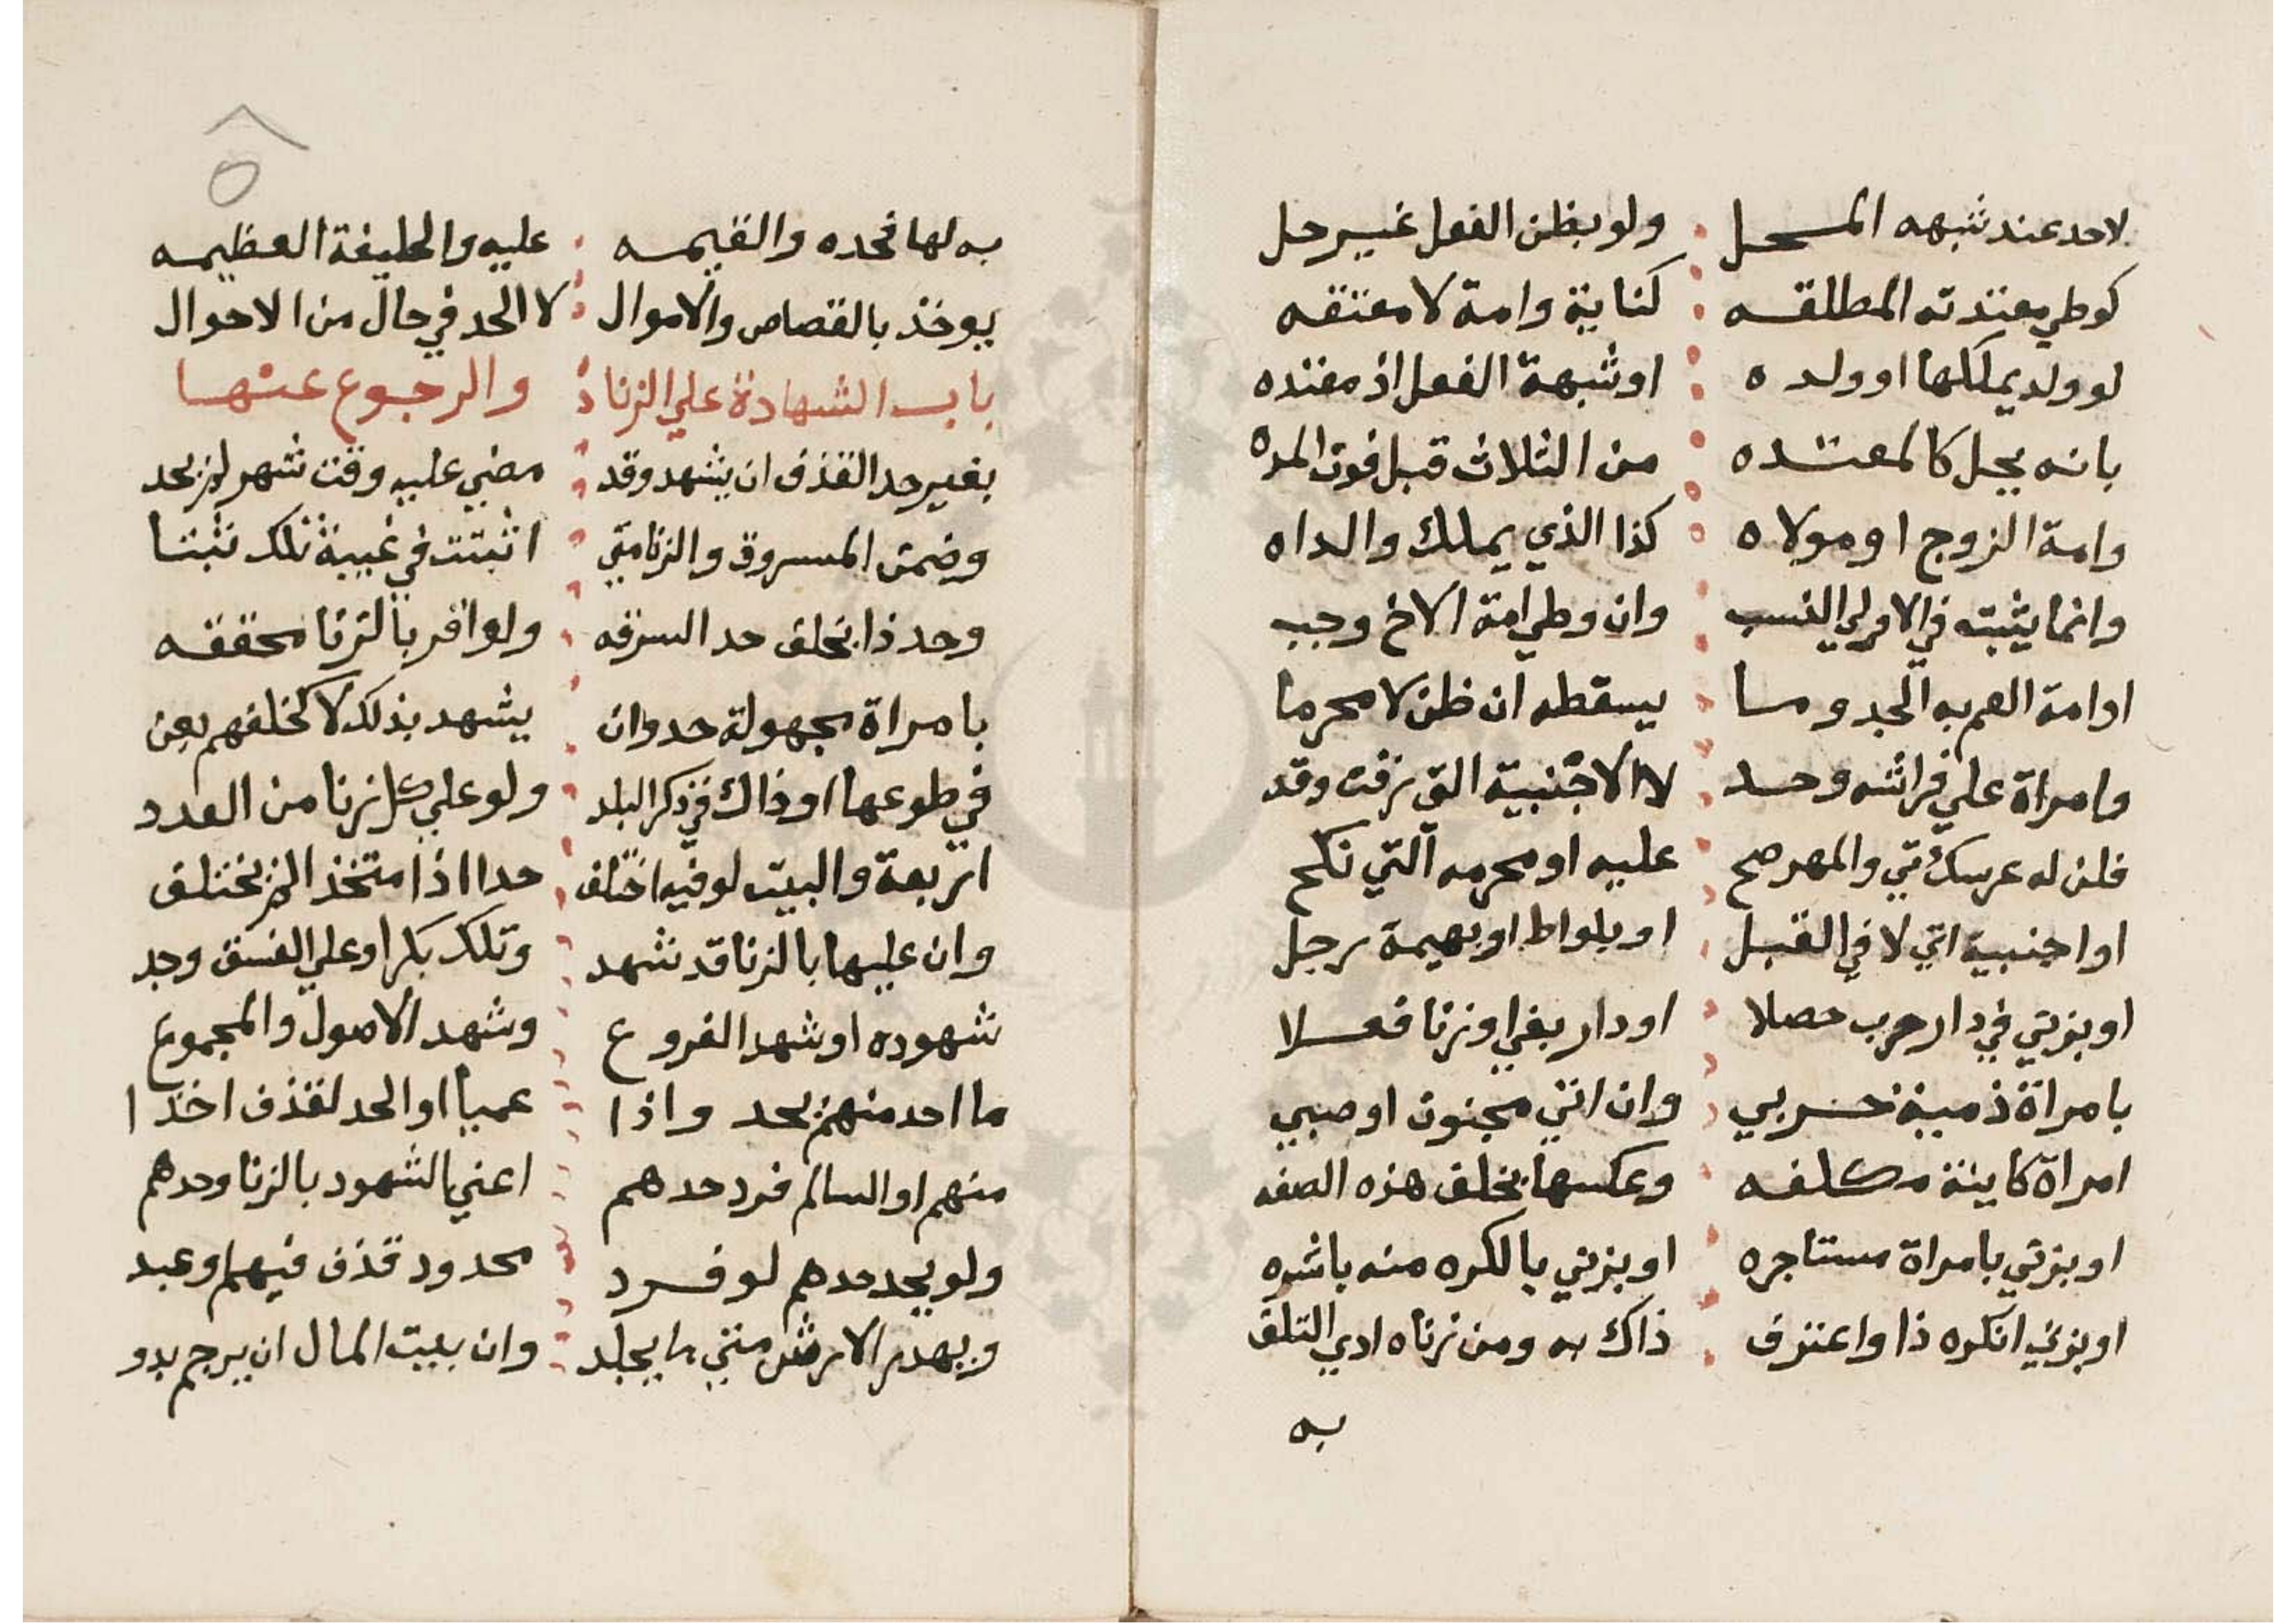 لاحد عند شبهه المحل ولو بظن الفعل غير حل
كوطي معتدته المطلقه كناية وامة لا معتقه
لو ولد يملكها او ولده او شبهة الفعل اذ معتده
بانه يحل كالمعتده من الثلاث قبل فوت المده
وامة الزوج او مولاه كذا الذي يملك والداه
وانما يثبته في الاولي النسب وان وطي امة الاخ وجب
او امة العم به الحد وما يسقطه ان ظن لا محرما
وامراة علي فراشه وحد لا الاجنبية التي زفت وقد
قلن له عرسك تي والمهر صح عليه او محرمه التي نكح
او اجنبية اتي لا في القبل او بلواط او بهيمة رجل
او بزني في دار حرب حصلا او دار بغي او زنا فعلا
بامراة ذمية حربي وان اتي مجنون او صبي
امراة كاينة مكلفه وعكسها بخلف هذه الصفه
او بزني بامراة مستاجره او بزني بالكره منه باشره
او بزني انكره ذا واعترف ذاك به ومن زناه ادي التلف
به
به لها فحده والقيمه عليه والخليفة العظيمه
يوخذ بالقصاص والاموال لا الحد في حال من الاحوال
باب الشهادة علي الزنا والرجوع عنها
بغير حد القذف ان يشهد وقد مضي عليه وقت شهر لم يحد
وضمن المسروق والزنا متي اثبتت في غيبة تلك ثبتا
وحد ذا بخلف حد السرقه ولو اقر بالزنا محققه
بامراة مجهولة حد وان يشهد بذلك لا كخلفهم بعن
في طوعها او ذاك في ذكر البلد ولو علي كل زنا من العدد
اربعة والبيت لو فيه اختلف حدا اذا متخذ لم يختلف
وان عليها بالزنا قد شهد وتلك بكر او علي الفسق وجد
شهوده او شهد الفروع وشهد الاصول والمجموع
ما احد منهم يحد واذا عميا او الحد لقذف اخذا
منهم او السالم فرد حدهم اعني الشهود بالزنا وحدهم
ولو يحد حدهم لو فرد محدود قذف فيهم او عبد
ويهدر الارش متي ما يجلد وان ببيت المال ان يرجم يدو